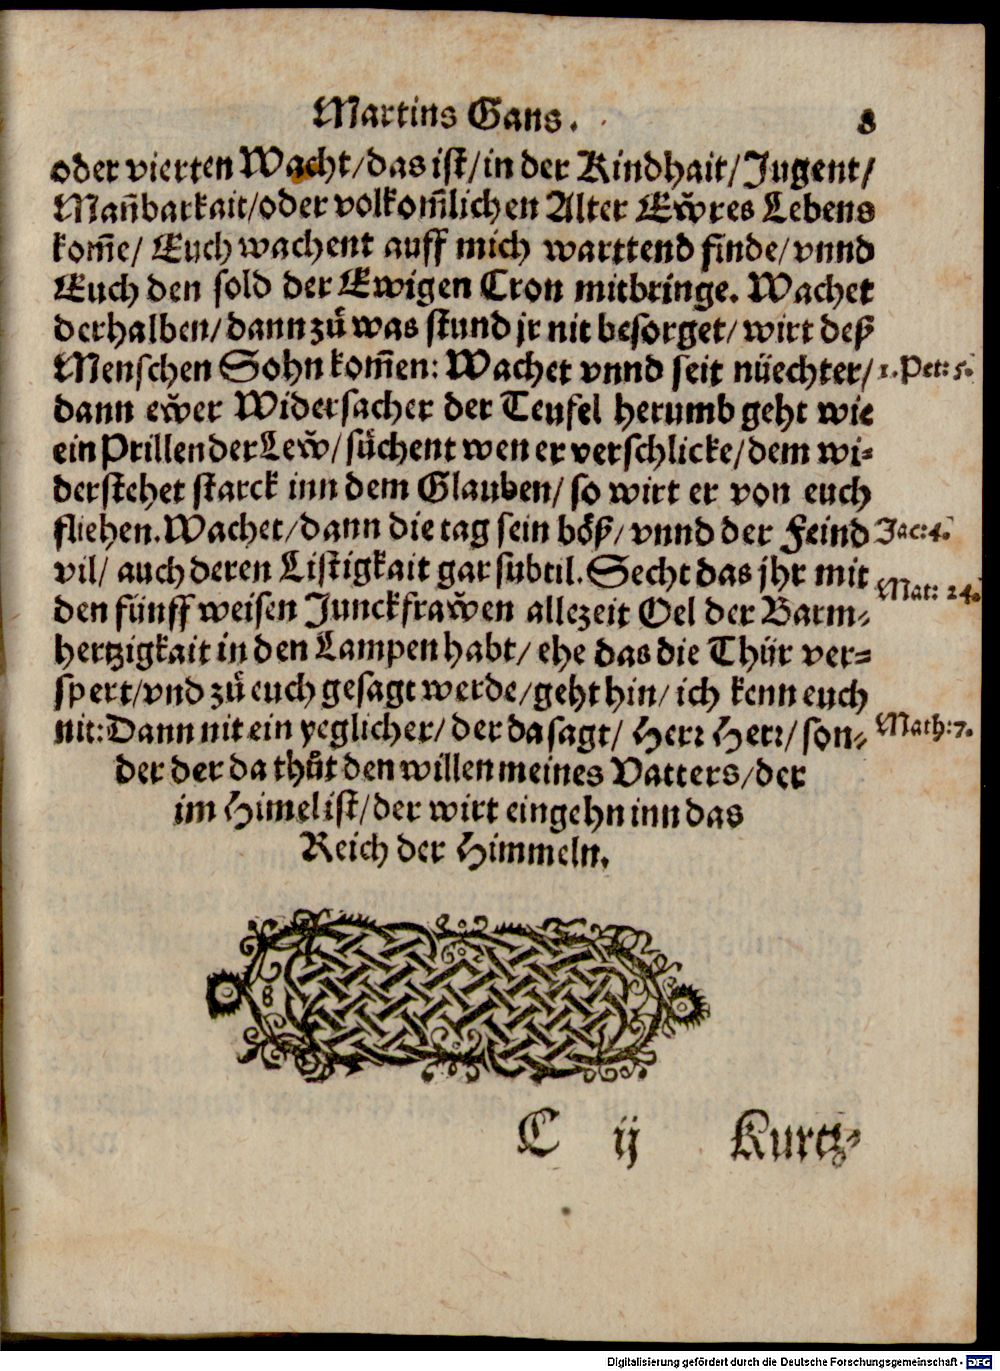 Martins Gans. 8
oder vierten Wacht/das ist/in der Kindhait/Jugent/
Mañbarkait/oder volkom̃lichen Alter Ewͤres Lebens
kom̃e/ Euch wachent auff mich warttend finde/vnnd
Euch den sold der Ewigen Cron mitbringe. Wachet
derhalben/dann zuͤ was stund jr nit besorget/wirt deß
Menschen Sohn kom̃en: Wachet vnnd seit nüechter/ 1. Pet: 5.
dann ewͤer Widersacher der Teufel herumb geht wie
ein Prillender Lewͤ/suͤchent wen er verschlicke/dem wi-
derstehet starck inn dem Glauben/ so wirt er von euch
fliehen. Wachet/dann die tag sein böß/vnnd der Feind Jac: 4.
vil/ auch deren Listigkait gar subtil. Secht das jhr mit
Mat: 24.
den fünff weisen Junckfrawͤen allezeit Oel der Barm-
hertzigkait in den Lampen habt/ ehe das die Thür ver-
spert/vnd zuͤ euch gesagt werde/geht hin/ ich kenn euch
nit: Dann nit ein yeglicher/ der da sagt/ Herꝛ Herꝛ/ son- Math: 7.
der der da thuͤt den willen meines Vatters/der
im Himel ist/der wirt eingehn inn das
Reich der Himmeln.
C ij Kurtz-
Digitalisierung gefördert durch die Deutsche Forschungsgemeinschaft - DFG